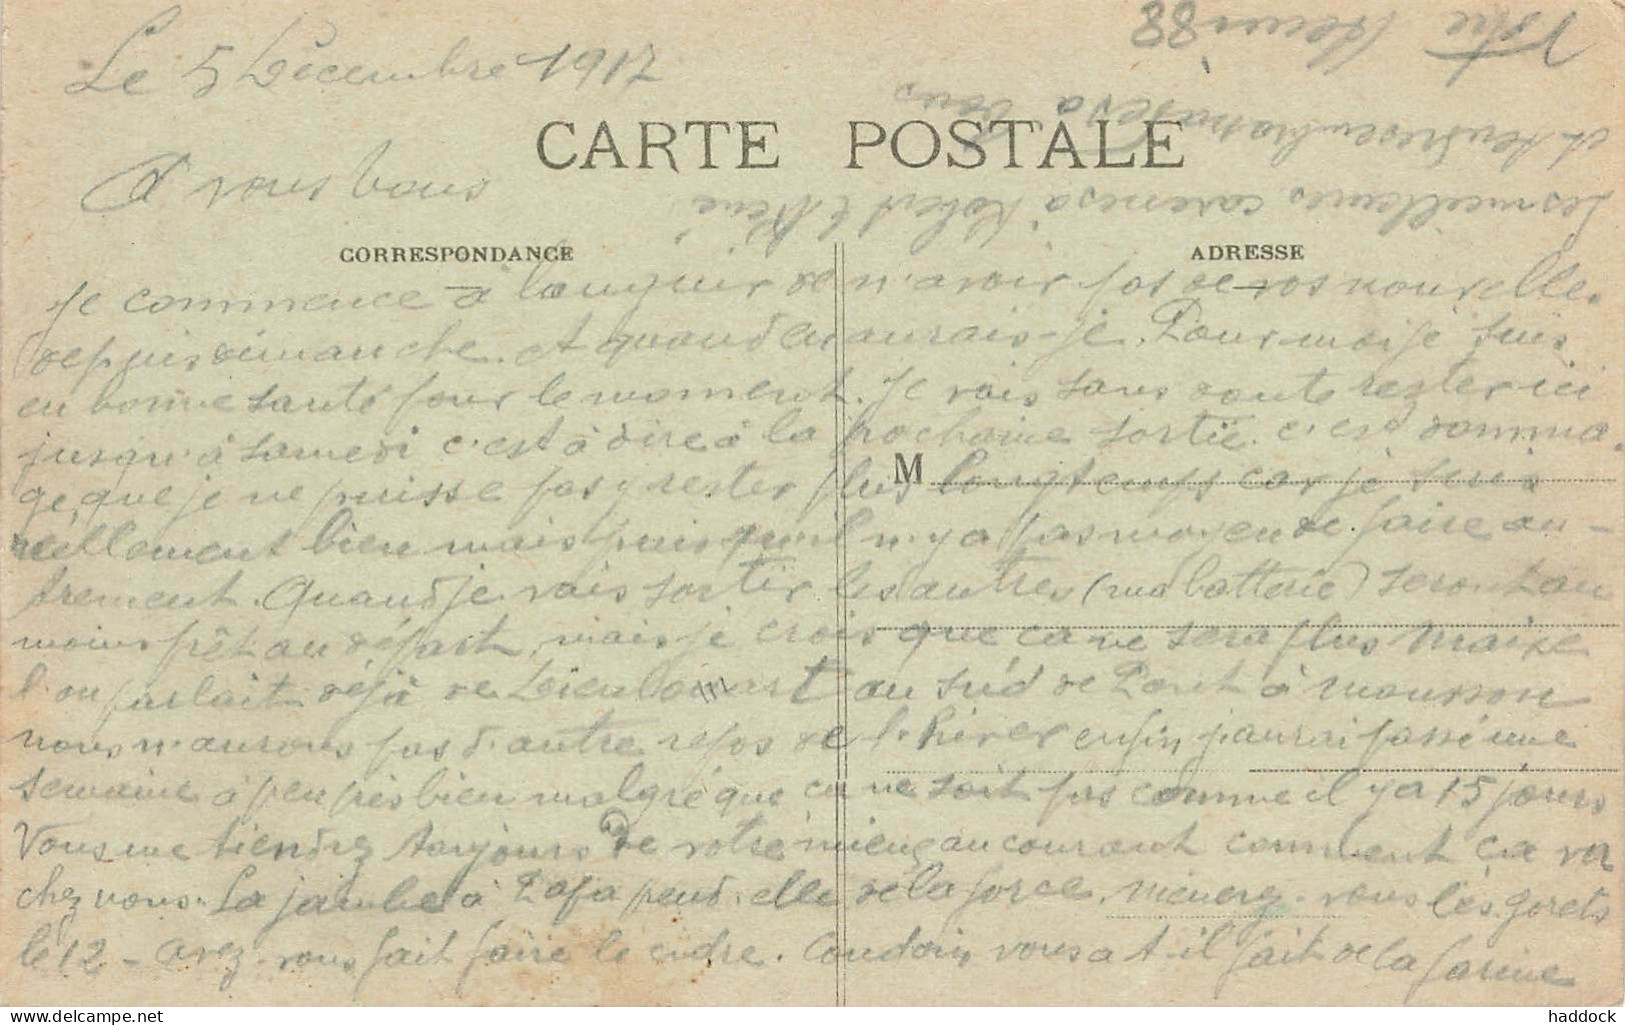 Le 5 Decembre 1917
CARTE POSTALE
A vous tous
CORRESPONDANCE
ADRESSE
Je commence à languir de n'avoir pas de vos nouvelles
depuis dimanche. Et quand en aurais-je. Pour moi je suis
en bonne santé pour le moment. Je vais sans doute rester ici
jusqu'à samedi c'est à dire à la prochaine sortie. c'est domma-
ge, que je ne puisse pas y rester plus longtemps car je suis
M
réellement bien mais puisqu'il n'y a pas moyen de faire au-
trement. Quand je vais sortir les autres (ma batterie) seront au
moins prêt au départ, mais je crois que ca ne sera plus
l'on parlait déjà de au sud de Pont à mousson
nous n'aurons pas d'autre repos de l'hiver enfin j'aurai passé une
semaine à peu près bien malgré que ça ne soit pas comme il y a 15 jours
Vous me tiendrez toujours de votre mieux au courant comment ça va
chez nous. La jambe à Papa prend-elle de la force. Mènerez-vous les gorets
le 12 - Avez-vous fait faire le cidre. vous a t-il fait de la farine
Les meilleures caresses à Robert & René
et tendres embrassades à tous
Votre Henri 88
haddock
https://www.delcampe.net